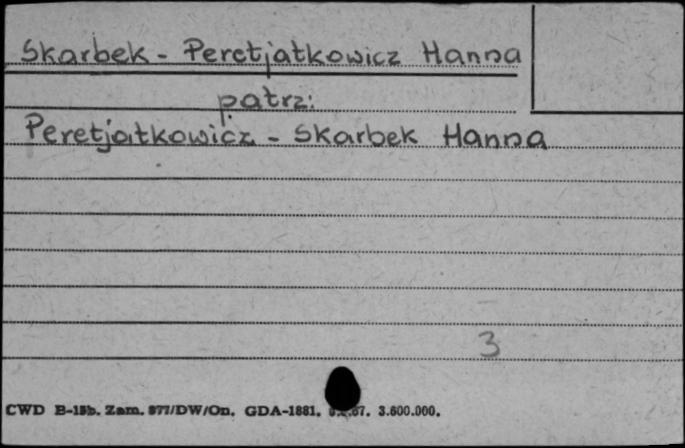 Skarbek - Peretjatkowicz Hanna
patrz:
Peretjatkowicz - Skarbek Hanna
3
CWD B-15b. Zam. 877/DW/On. GDA-1881. 3.600.000.